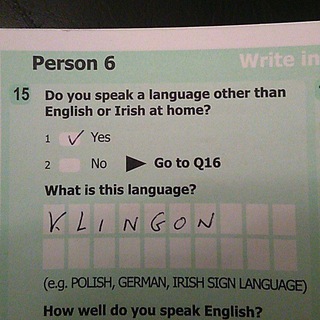 Person 6 Write in
15 Do you speak a language other than
English or Irish at home?
1 ✓ Yes
2 No Go to Q16
What is this language?
KLINGON
(e.g. POLISH, GERMAN, IRISH SIGN LANGUAGE)
How well do you speak English?